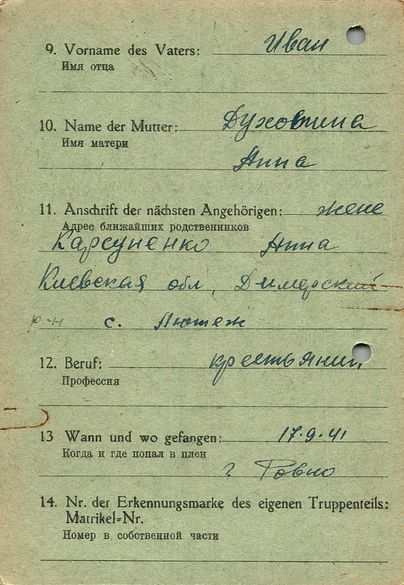 9. Vorname des Vaters: Иван
Имя отца
10. Name der Mutter: Духовтина
Имя матери
Анна
11. Anschrift der nächsten Angehörigen: жене
Адрес ближайших родственников
Карсуненко Анна
Киевская обл, Димерский
р-н с. Лютеж
12. Beruf: крестьянин
Профессия
13 Wann und wo gefangen: 17.9.41
Когда и где попал в плен
г. Ровно
14. Nr. der Erkennungsmarke des eigenen Truppenteils:
Matrikel-Nr.
Номер в собственной части